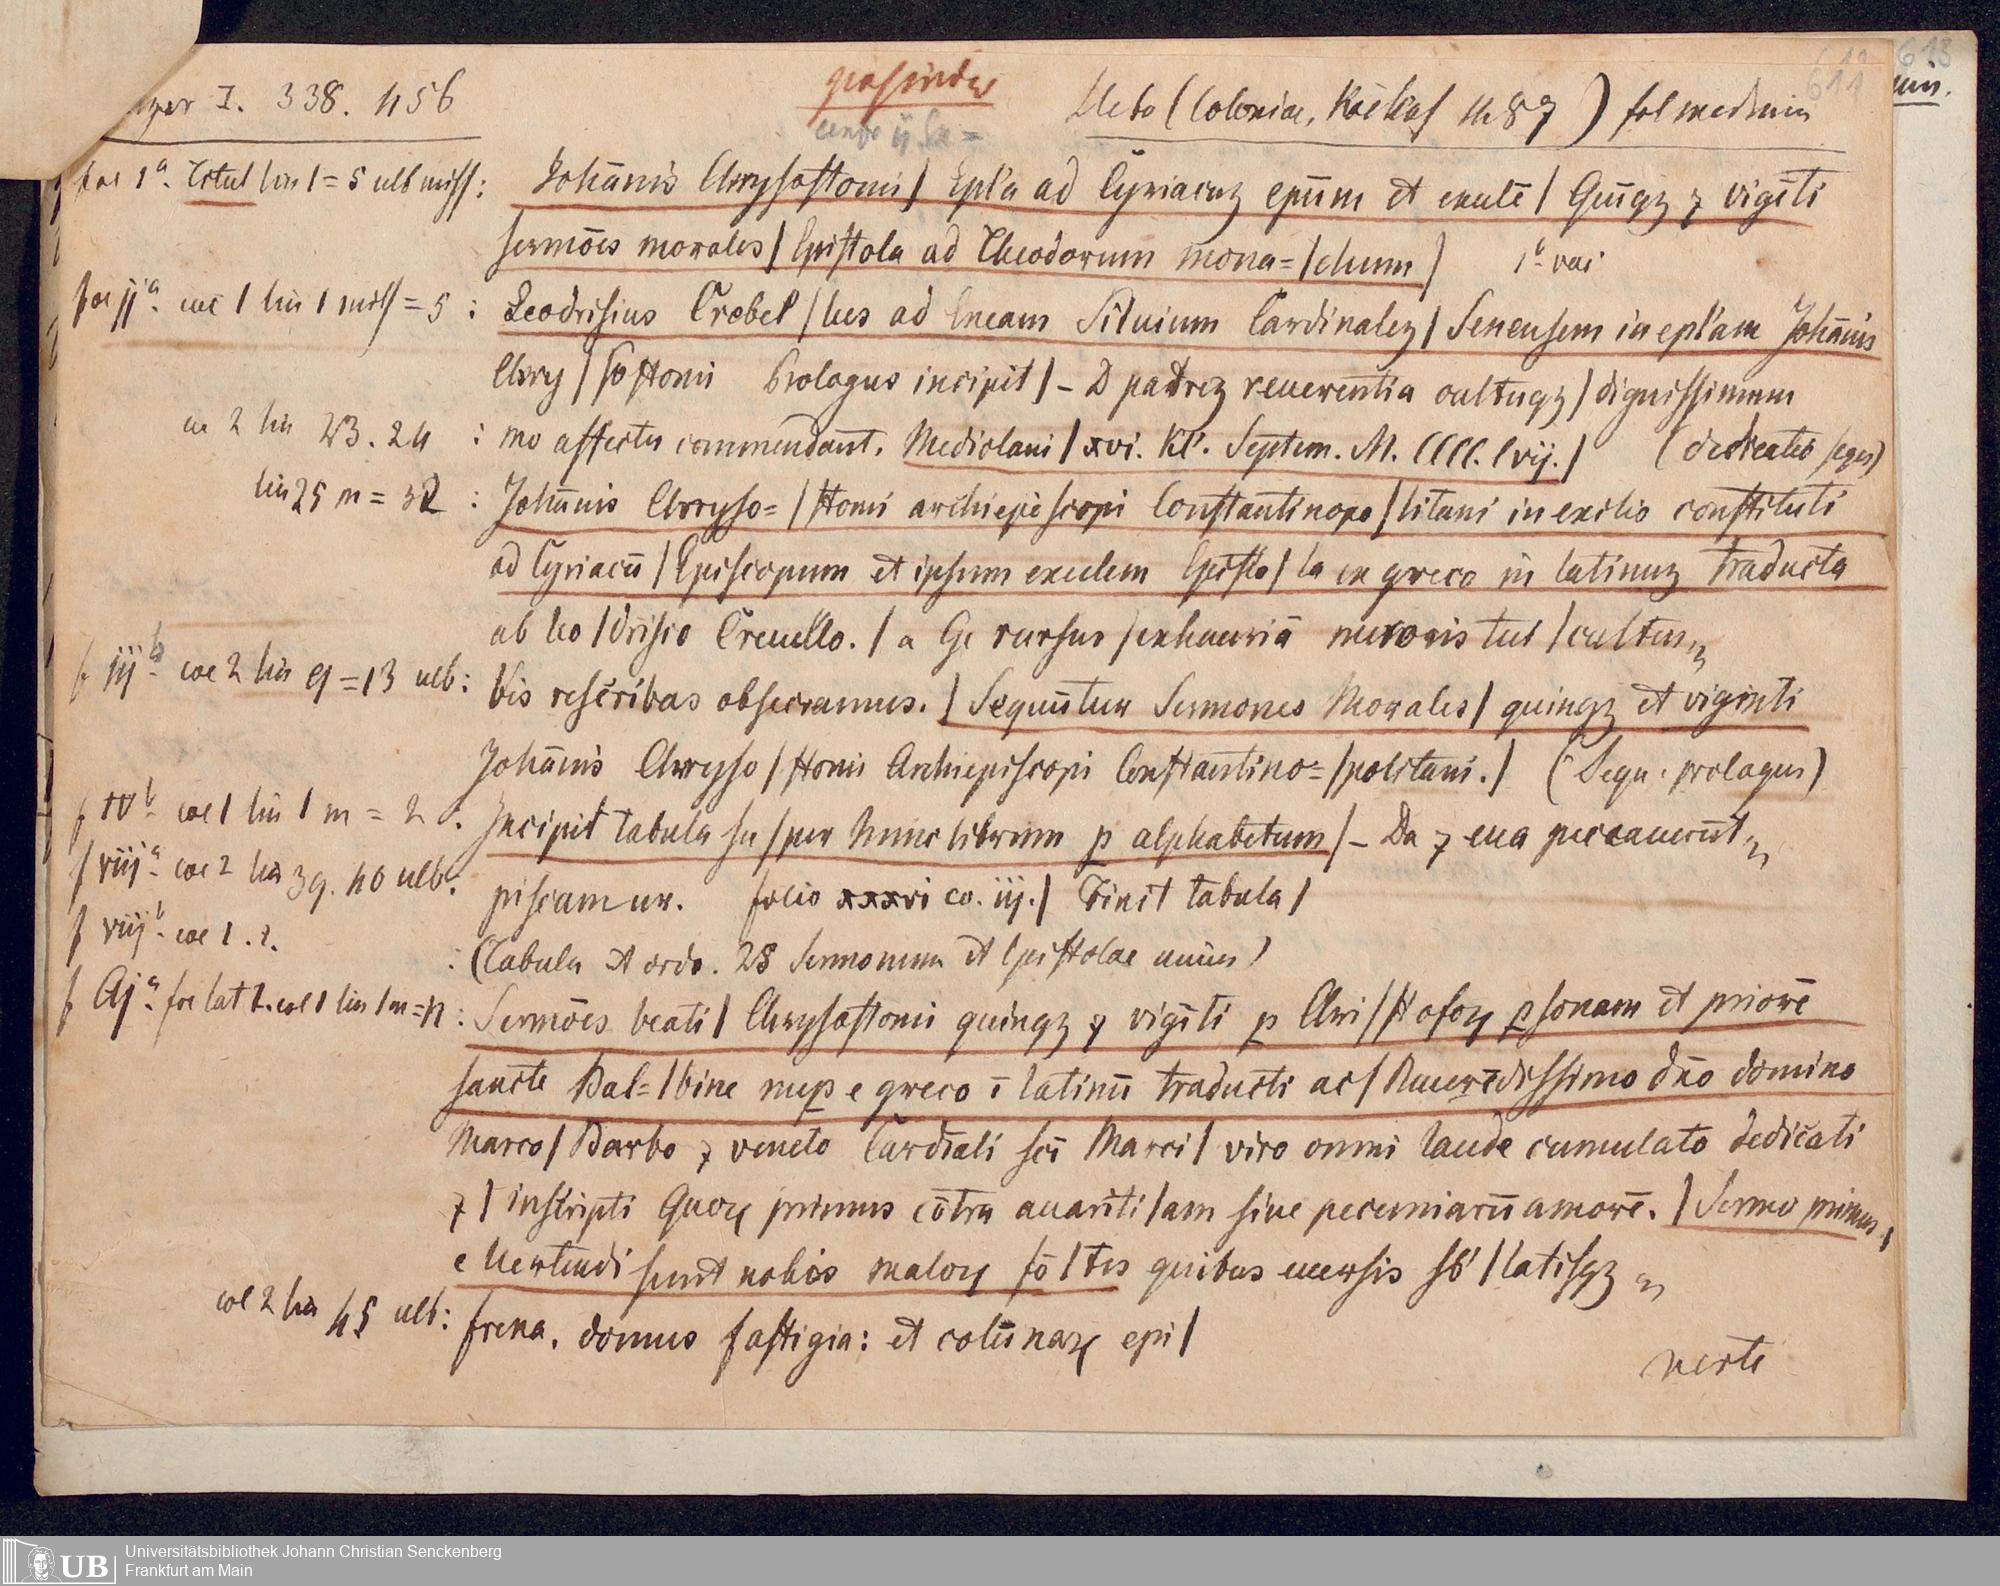 I. 338. 456
Ueto (Coloniae, Koelhoff 1487) fol medium
611
618
fol 1ᵃ. Titul lin 1 = 5 alb miss: Johānis Chrysostomi / Epl'a ad Cyriacuz epūm et exulē / Quīqz ⁊ vigīti
sermōes morales / Epistola ad Theodorum mona= / chum / 1ᵇ vac
fol ijᵃ. col 1 lin 1 miss = 5 : Leodrisius Crebel / lus ad Eneam Siluium Cardinalez / Senensem in epl'am Johānis
Chry / sostomi Prologus incipit / – D patrez reuerentia cultuqz / dignissimum
col 2 lin 23. 24 : mo affectu commendant. Mediolani / xvi. Kl'. Septem. M. CCCC. lvij. / (dedicatio sequ)
lin 25 m = 32 : Johānis Chryso= / stomi archiepiscopi Constantinopo / litani in exilio constituti
ad Cyriacū / Episcopum et ipsum exulem Episto / la ex greco in latinuz traducta
ab Leo / drisio Creuello. / a Ge rursus / exhauriā meroris tui / cultus „
f iijᵇ. col 2 lin 9 = 13 alb: bis rescribas obsecramus. / Sequūtur Sermones Morales / quinqz et viginti
Johānis Chryso / stomi Archiepiscopi Constantino= / politani. / (Sequ. prologus)
f ivᵇ. col 1 lin 1 m = 2 : Incipit tabula su / per hunc librum p alphabetum / – Da ⁊ eua peccauerūt „
f viijᵃ. col 2 lin 39. 40 alb: piscamur. folio xxxvi co. iij. / Finit tabula /
f viijᵇ. col 1. 2. : (Tabula et ordo. 25 Sermonum et Epistolae unius)
f Ajᵃ. fol lat 1. col 1 lin 1 m = 11 : Sermōes beati / Chrysostomi quinqz ⁊ vigīti p Chri / stofoꝝ psonam et priorē
sancte Bal= / bine nup e greco ī latinū traducti ac / Reuerēdissimo dn̄o domino
Marco / Barbo ⁊ veneto Cardīali sci Marci / viro omni laude cumulato dedicati
⁊ / inscripti Quoꝝ primus cōtra auariti / am siue pecuniarū amorē. / Sermo primus /
e Uertendi sunt nobis maloꝝ fō / tes quibus euersis sb' / latisqz „
col 2 lin 45 alb: frena. domus fastigia: et colūnaꝝ epi /
verte
UB
Universitätsbibliothek Johann Christian Senckenberg
Frankfurt am Main